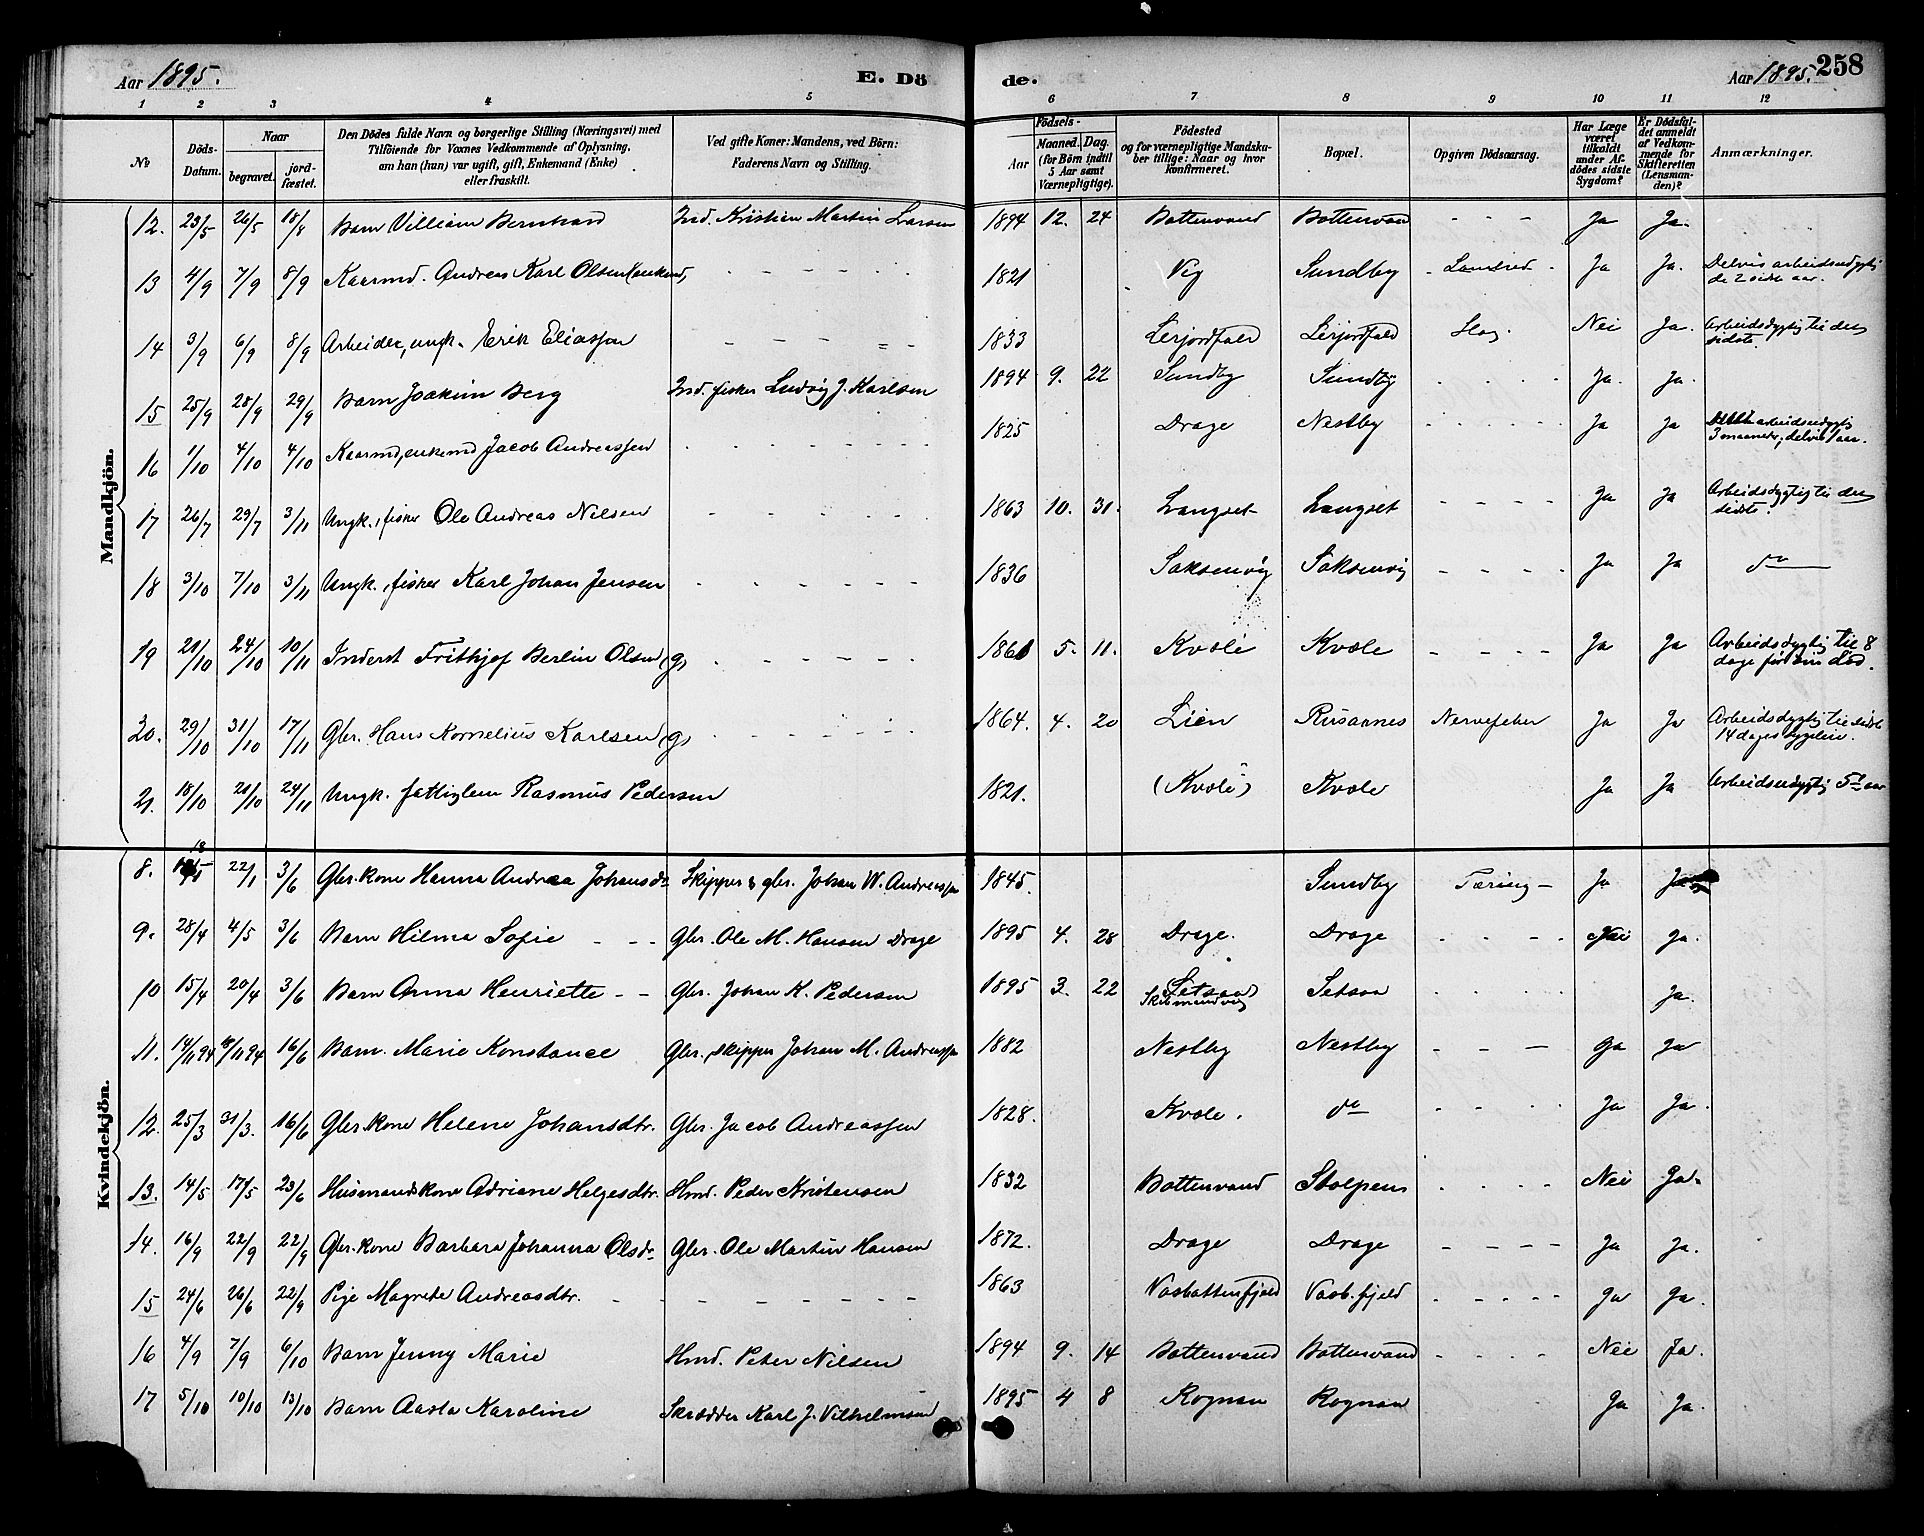 Aar 1895. E. Dö de. Aar 1895. 258
1 2 3 4 5 6 7 8 9 10 11 12
№ Döds-Datum. Naar begravet. jordfæstet. Den Dödes fulde Navn og borgerlige Stilling (Næringsvei) med Tilföiende for Voxnes Vedkommende af Oplysning, om han (hun) var ugift, gift, Enkemand (Enke) eller fraskilt. Ved gifte Koner: Mandens, ved Börn: Faderens Navn og Stilling. Födsels- Aar Maaned. Dag. (for Börn indtil 5 Aar samt Værnepligtige). Födested og for værnepligtige Mandskaber tillige: Naar og hvor konfirmeret. Bopæl. Opgiven Dödsaarsag. Har Læge været tilkaldt under Afdödes sidste Sygdom? Er Dödsfaldet anmeldt af Vedkommende for Skifteretten (Lensmanden)? Anmærkninger.
Mandkjön.
12. 23/5 26/5 18/8 Barn Villiam Bernhard Ind. Kristian Martin Larsen 1894 12. 24 Bottenvand Bottenvan - - - Ja Ja.
13 4/9 7/9 8/9 Kaarmd. Andreas Karl Olsen (enkemd) - - - - - 1821 Vig Sundby Ja Ja. Delvis arbeidsudygtig de 2 sidste aar.
14 3/9 6/9 8/9 Arbeider, ungk. Erik Eliassen - - - - 1833 Leijordfald Leijordfald Slag. Nei Ja. Arbeidsdygtig til det sidste.
15 25/9 28/9 29/9 Barn Joakim Berg Ind. fisker Ludvig J. Karlsen 1894 9. 22 Sundby Sundby - - - - Ja. Ja.
16 1/10 4/10 4/10 Kaarmd, enkemd Jacob Andreassen - - - - - 1825 Drage Nestby - - - - Ja Ja arbeidsudygtig 3 maaneder, delvis 1 aar.
17 26/7 29/7 3/11 Ungk., fisker Ole Andreas Nilsen - - - - - 1863 10. 31. Langset Langset - - - - Ja Ja Arbeidsdygtig til det sidste.
18 3/10 7/10 3/11 Ungk., fisker Karl Johan Jensen - - - - - 1836 Saksenvig Saksenvig - - - - Ja Ja do
19 21/10 24/10 10/11 Inderst Frithjof Berlin Olsen (g) - - - - - 1861 5. 11. Kvale Kvale - - - - Ja Ja Arbeidsdygtig til 8 dage før sin død.
20. 29/10 31/10 17/11 Gbr. Hans Kornelius Karlsen (g) - - - - - 1864. 4. 20 Lien Rusaanes Nervefeber Ja Ja Arbeidsdygtig til sidste 14 dages sygeleie.
21. 18/10 21/10 24/11 Ungk. fattiglem Rasmus Pedersen 1821. (Kvale) Kvale Ja Ja Arbeidsudygtig 5 1/2 aar
Kvindekjön.
8. 18/1 22/1 3/6 Gbr.kone Hanna Andrea Johansdr Skipper & gbr. Johan W. Andreassen 1845. Sundby Tæring - Ja Ja
9. 28/4 4/5 3/6 Barn Hilma Sofie - - - Gbr. Ole M. Hansen Drage 1895 4. 28 Drage. Drage - - - - Nei Ja.
10 15/4 20/4 3/6 Barn Anna Henriette - - Gbr. Johan K. Pedersen 1895 3. 22 Setsaa Setsaa - - - - Ja.
11. 14/11 94 18/11 94 16/6 Barn. Marie Konstance Gbr, skipper Johan M. Andreassen 1882 Nestby Nestby - - - Ja Ja
12. 25/3 31/3. 16/6 Gbr.kone Helene Johansdtr. Gbr. Jacob Andreassen 1828. Kvale. do - - - - Ja Ja.
13. 14/5 17/5 23/6 Husmandskone Adriane Helgesdtr. Hmd. Peder Kristensen 1832 Bottenvand Stolpens - - - - Nei Ja.
14. 16/9 22/9 22/9 Gbr.kone Barbara Johanna Olsdr Gbr. Ole Martin Hansen 1872. Drage Drage - - - - Ja Ja.
15 24/6 26/6 22/9 Pige Magrete Andreasdtr. - - - - - - - 1863 Vasbottenfjeld Vasb.fjeld - - - - Ja Ja.
16 4/9 7/9 6/10 Barn Jenny Marie Hmd. Peter Nilsen 1894 9. 14 Bottenvand Bottenvand - - - - Nei Ja.
17 5/10 10/10 13/10 Barn Aasta Karoline Skrædder Karl J. Vilhelmsen 1895 4 8 Rognan Rognan Ja Ja.